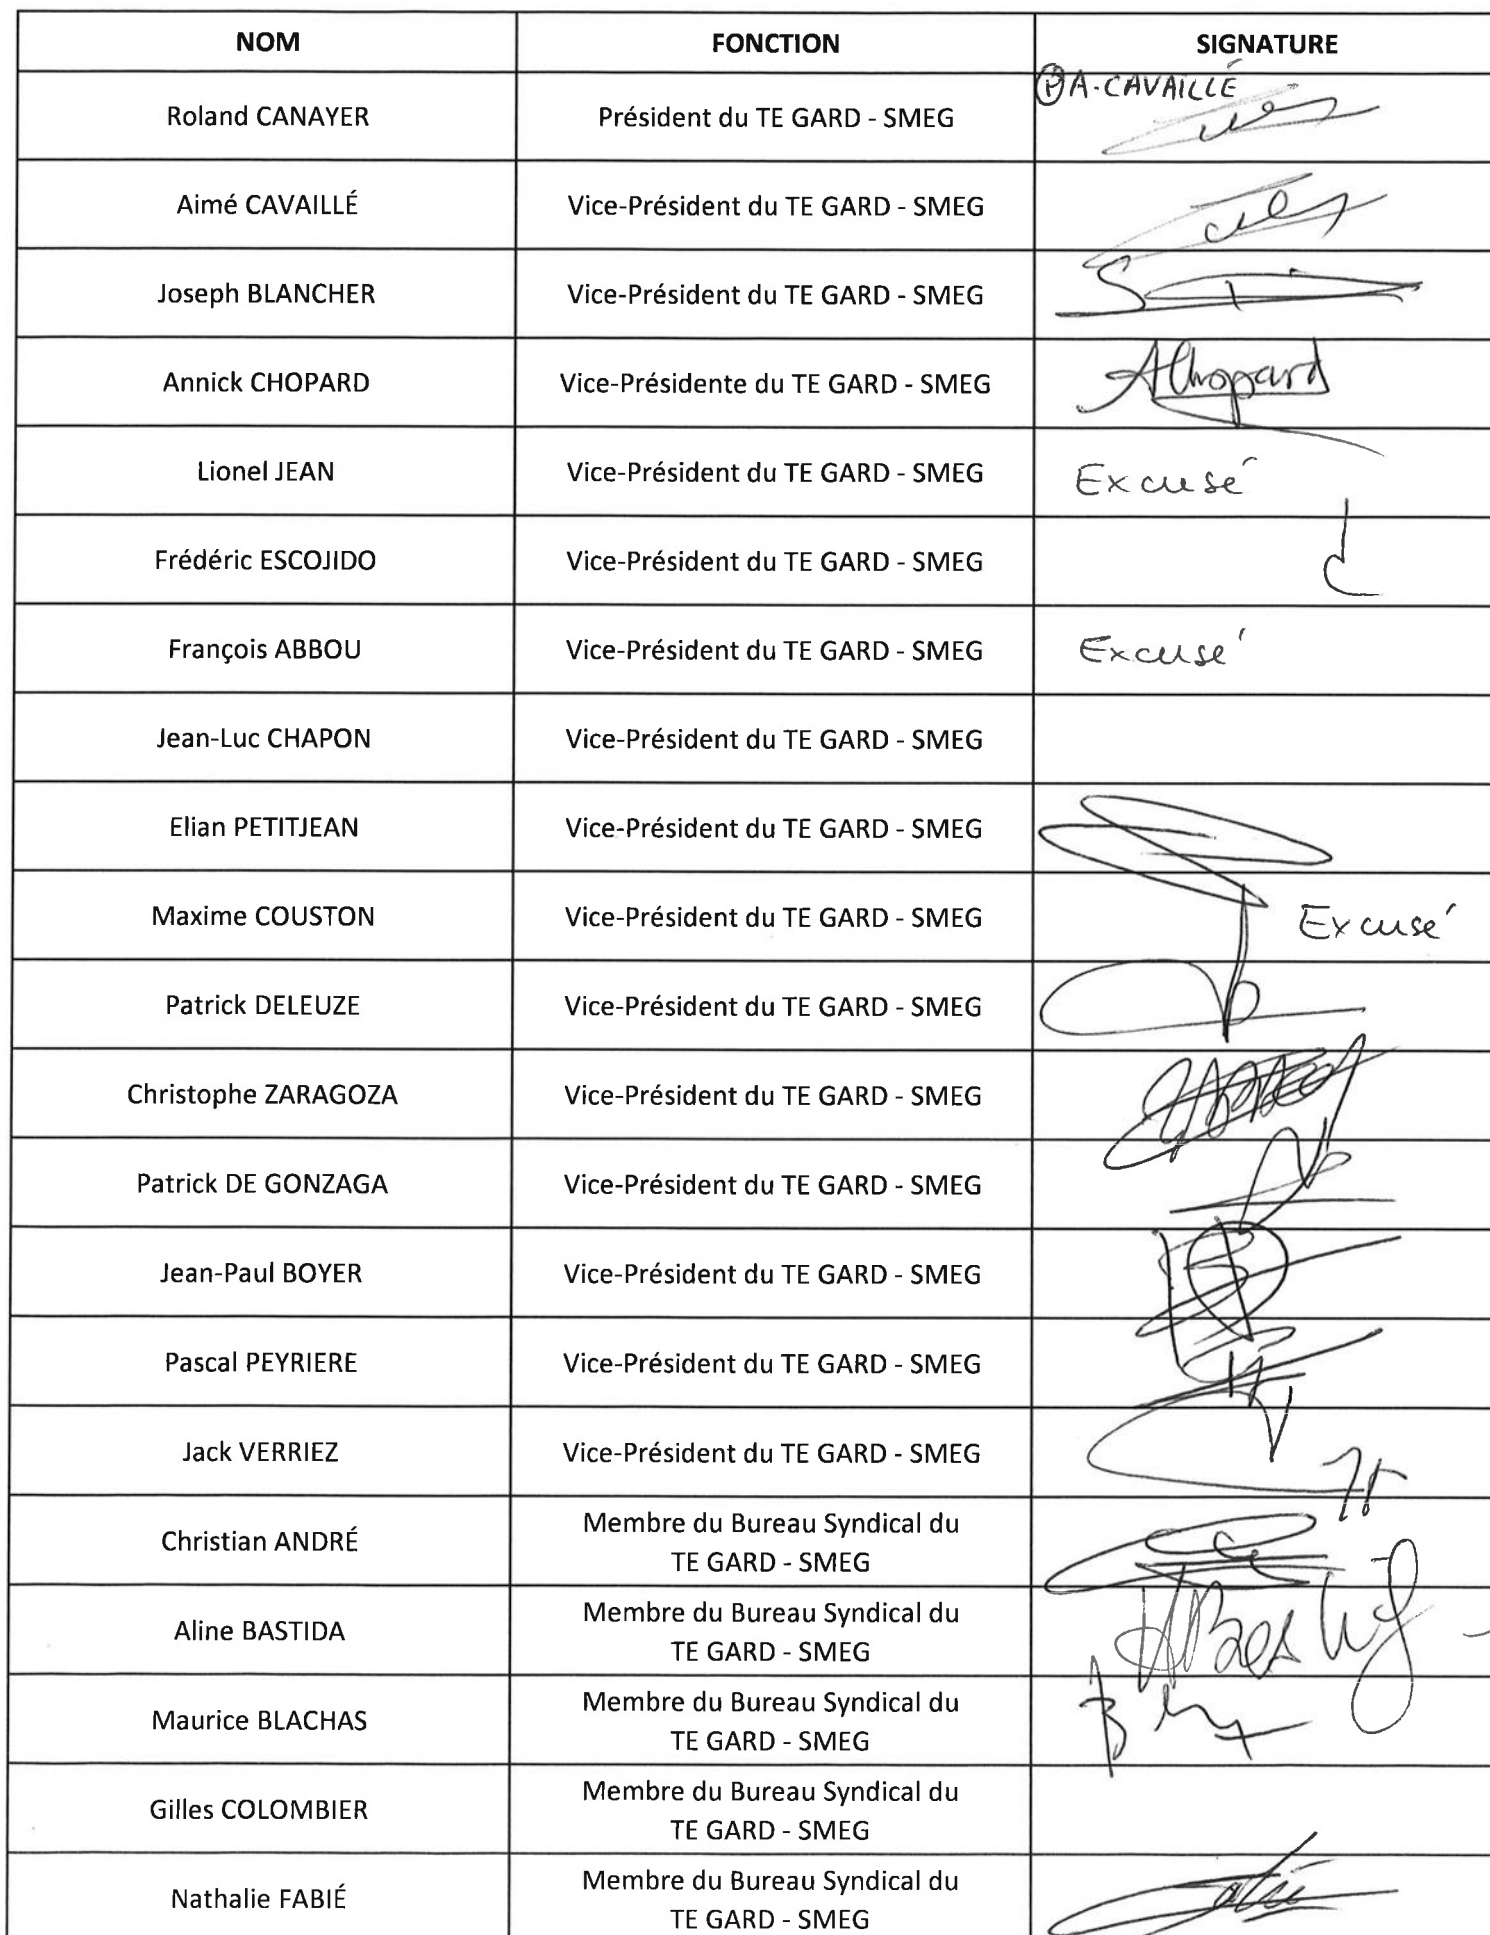 NOM FONCTION SIGNATURE
Roland CANAYER Président du TE GARD - SMEG Ⓟ A-CAVAILLÉ
Aimé CAVAILLÉ Vice-Président du TE GARD - SMEG
Joseph BLANCHER Vice-Président du TE GARD - SMEG
Annick CHOPARD Vice-Présidente du TE GARD - SMEG AChopard
Lionel JEAN Vice-Président du TE GARD - SMEG Excusé
Frédéric ESCOJIDO Vice-Président du TE GARD - SMEG
François ABBOU Vice-Président du TE GARD - SMEG Excusé
Jean-Luc CHAPON Vice-Président du TE GARD - SMEG
Elian PETITJEAN Vice-Président du TE GARD - SMEG
Maxime COUSTON Vice-Président du TE GARD - SMEG Excusé
Patrick DELEUZE Vice-Président du TE GARD - SMEG
Christophe ZARAGOZA Vice-Président du TE GARD - SMEG
Patrick DE GONZAGA Vice-Président du TE GARD - SMEG
Jean-Paul BOYER Vice-Président du TE GARD - SMEG
Pascal PEYRIERE Vice-Président du TE GARD - SMEG
Jack VERRIEZ Vice-Président du TE GARD - SMEG
Christian ANDRÉ Membre du Bureau Syndical du
TE GARD - SMEG
Aline BASTIDA Membre du Bureau Syndical du
TE GARD - SMEG
Maurice BLACHAS Membre du Bureau Syndical du
TE GARD - SMEG
Gilles COLOMBIER Membre du Bureau Syndical du
TE GARD - SMEG
Nathalie FABIÉ Membre du Bureau Syndical du
TE GARD - SMEG